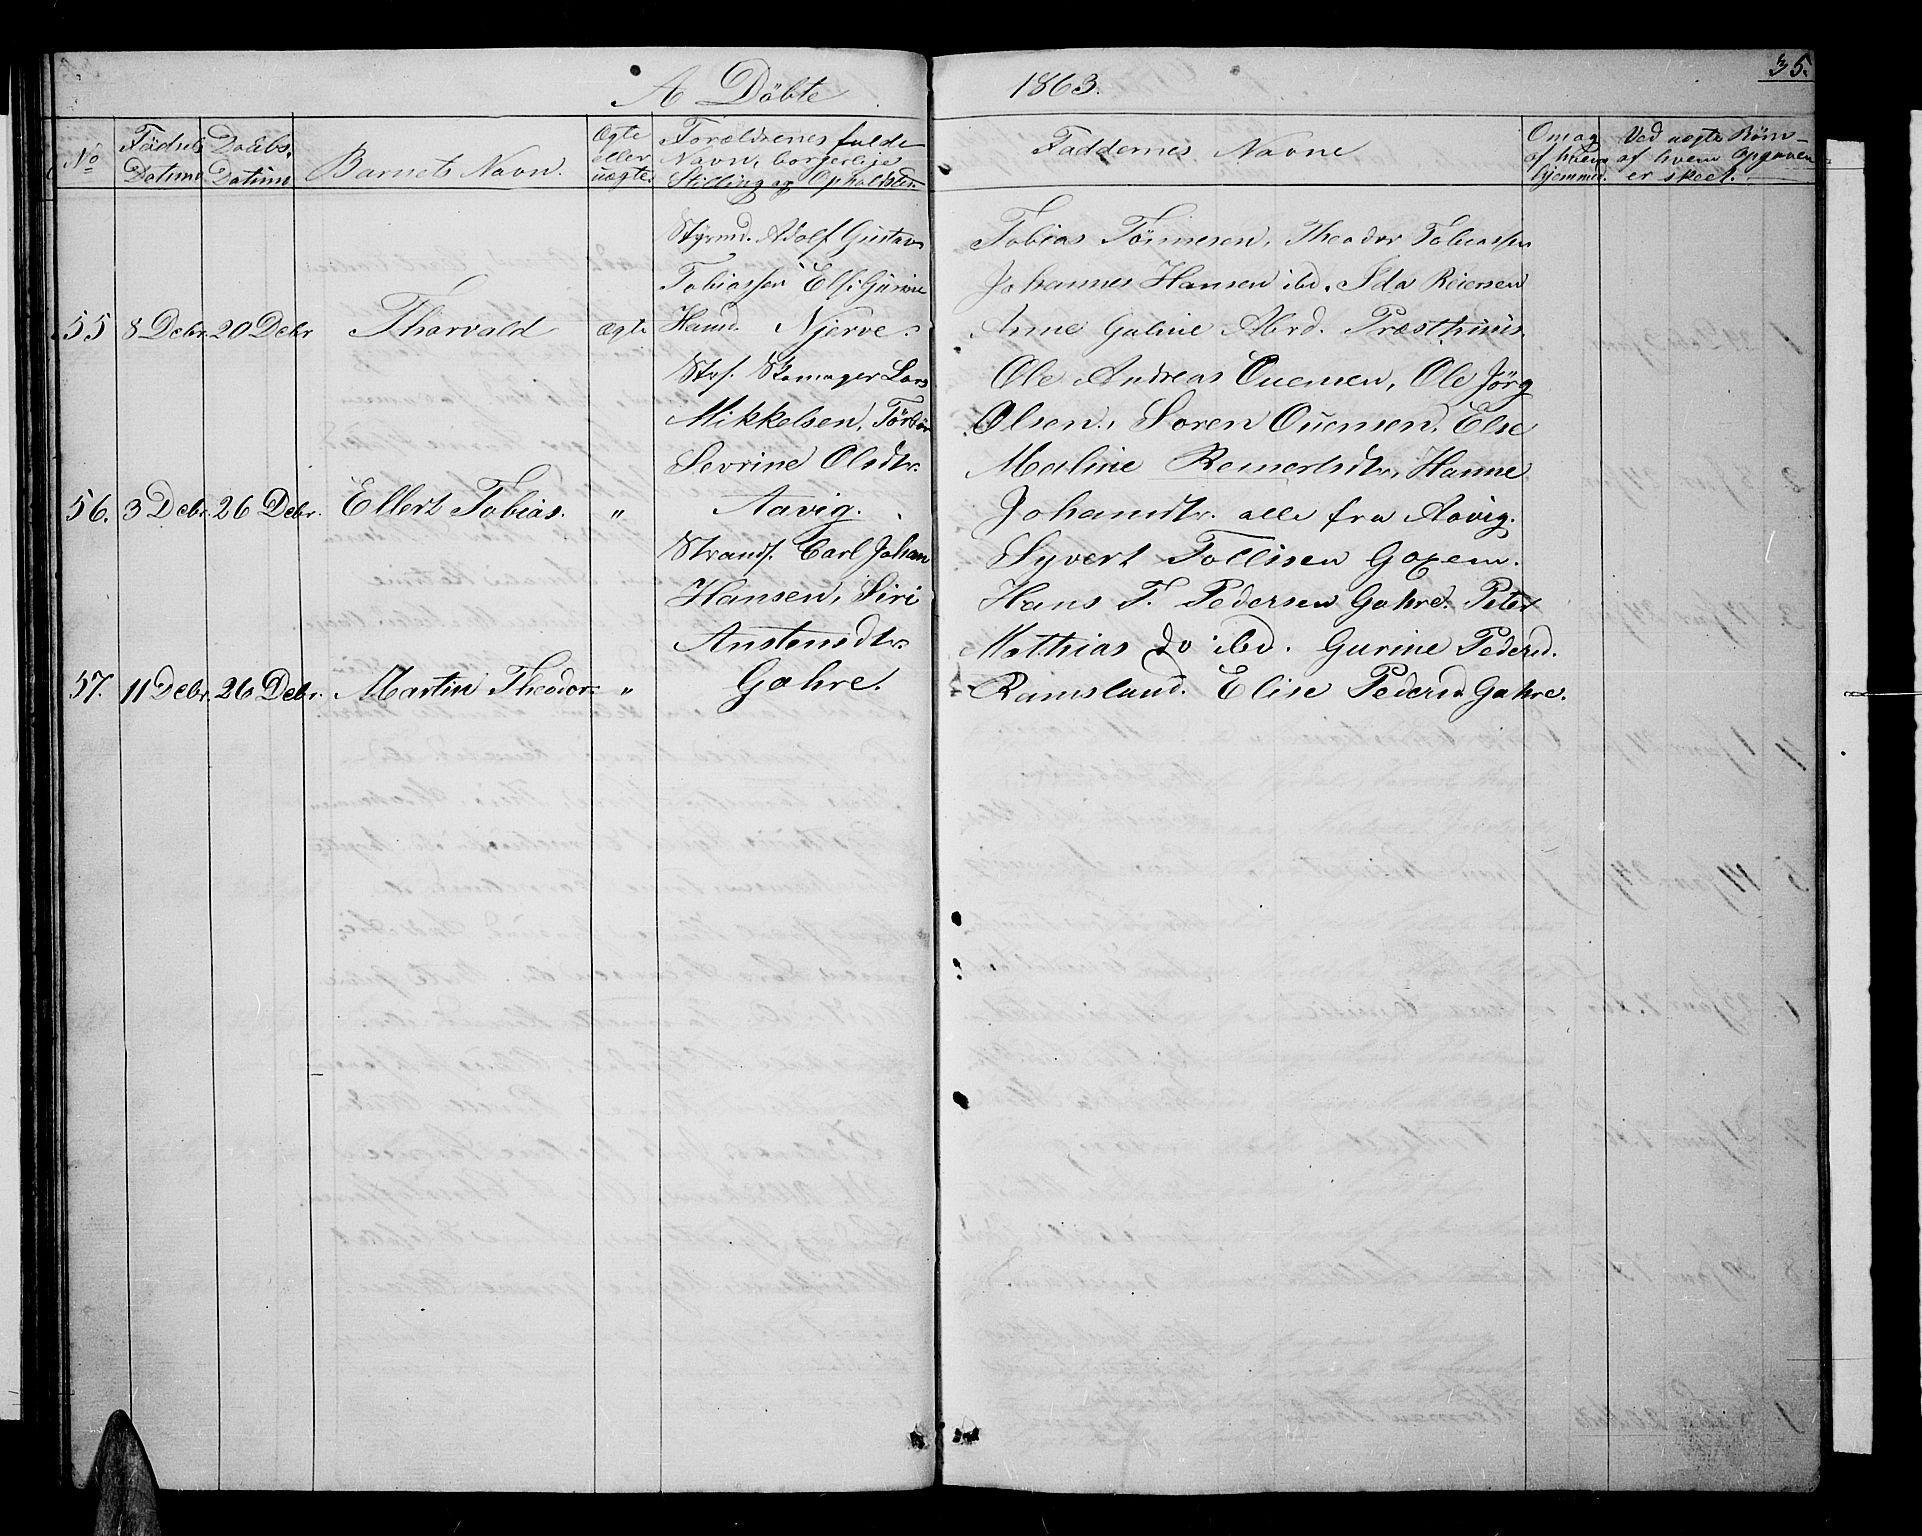 35.
A Döbte 1863.
No
Födsels Datum
Daabs. Datum
Barnets Navn.
Ægte eller uægte.
Forældrenes fulde Navn, borgerlige Stilling og Opholdster.
Faddernes Navne
Om og af hvem hjemmed.
Ved uægte Börn af hvem Opgaven er skeet.
55 8 Debr. 20 Debr Thorvald ægte
Styrmd. Adolf Gustav
Tobiassen Elsi Gurine
Hand. Njerve.
Tobias Tönnesen, Theodor Tobiassen
Johannes Hansen ibd. Ida Reiersen
Anne Galine Abrd. Præsthuus.
56. 3 Debr. 26 Debr. Ellert Tobias. "
Skomager Lars
Mikkelsen, Törbör
Sevrine Olsdtr.
Aavig.
Ole Andreas Ouensen, Ole Jörg
Olsen, Soren Ouensen, Else
Maline Reinertsdtr, Hanne
Johansdtr. alle fra Aavig.
57. 11 Debr. 26 Debr. Martin Theodor "
Strandf. Carl Johan
Hansen, Siri
Anstensdtr.
Gahre.
Syvert Tollisen Goxem.
Hans T. Pedersen Gahre. Peter
Mathias do ibd. Gurine Pedersd.
Ramsland. Elise Pedersd Gahre.